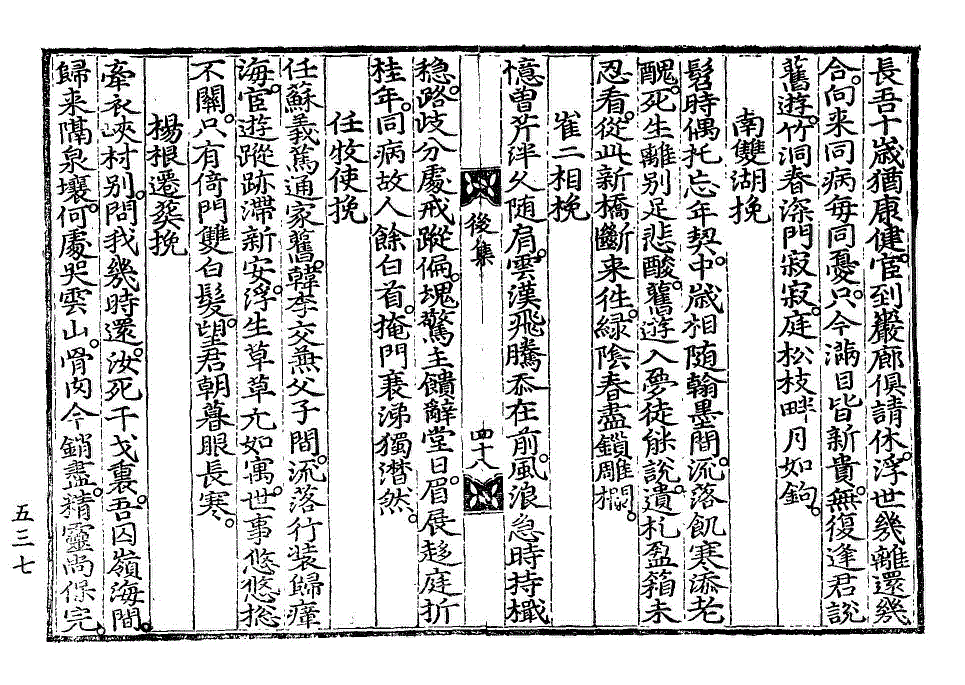 長吾十歲猶康健。官到巖廊俱請休。浮世幾離還幾
合。向来同病每同憂。只今滿目皆新貴。無復逢君說
舊遊。竹洞春深門寂寂。庭松枝畔月如鉤。
南雙湖挽
髫時偶托忘年契。中歲相随翰墨間。流落飢寒添老
醜。死生離别足悲酸。舊遊入夢徒能說。遺札盈箱未
忍看。從此新橋斷来徃。緑陰春盡鎖雕欄。
崔二相挽
憶曽芹泮久随肩。雲漢飛騰忝在前。風浪急時持檝
穩。路歧分處戒蹤偏。塊驚主饋辭堂日。眉展趍庭折
桂年。同病故人餘白首。掩門衰涕獨潸然。
任牧使挽
任蘇義篤通家舊。韓李交無父子間。流落行装歸瘴
海。宦遊蹤跡滯新安。浮生草草亢如寓。世事悠悠捴
不關。只有倚門雙白髮。望君朝暮眼長寒。
楊根遷葬挽
牽衣峽村别。問我幾時還。汝死干戈裏。吾囚嶺海間。
歸来隔泉壤。何處哭雲山。骨肉今銷盡。精靈尚保完。
後集
四十八
五三七